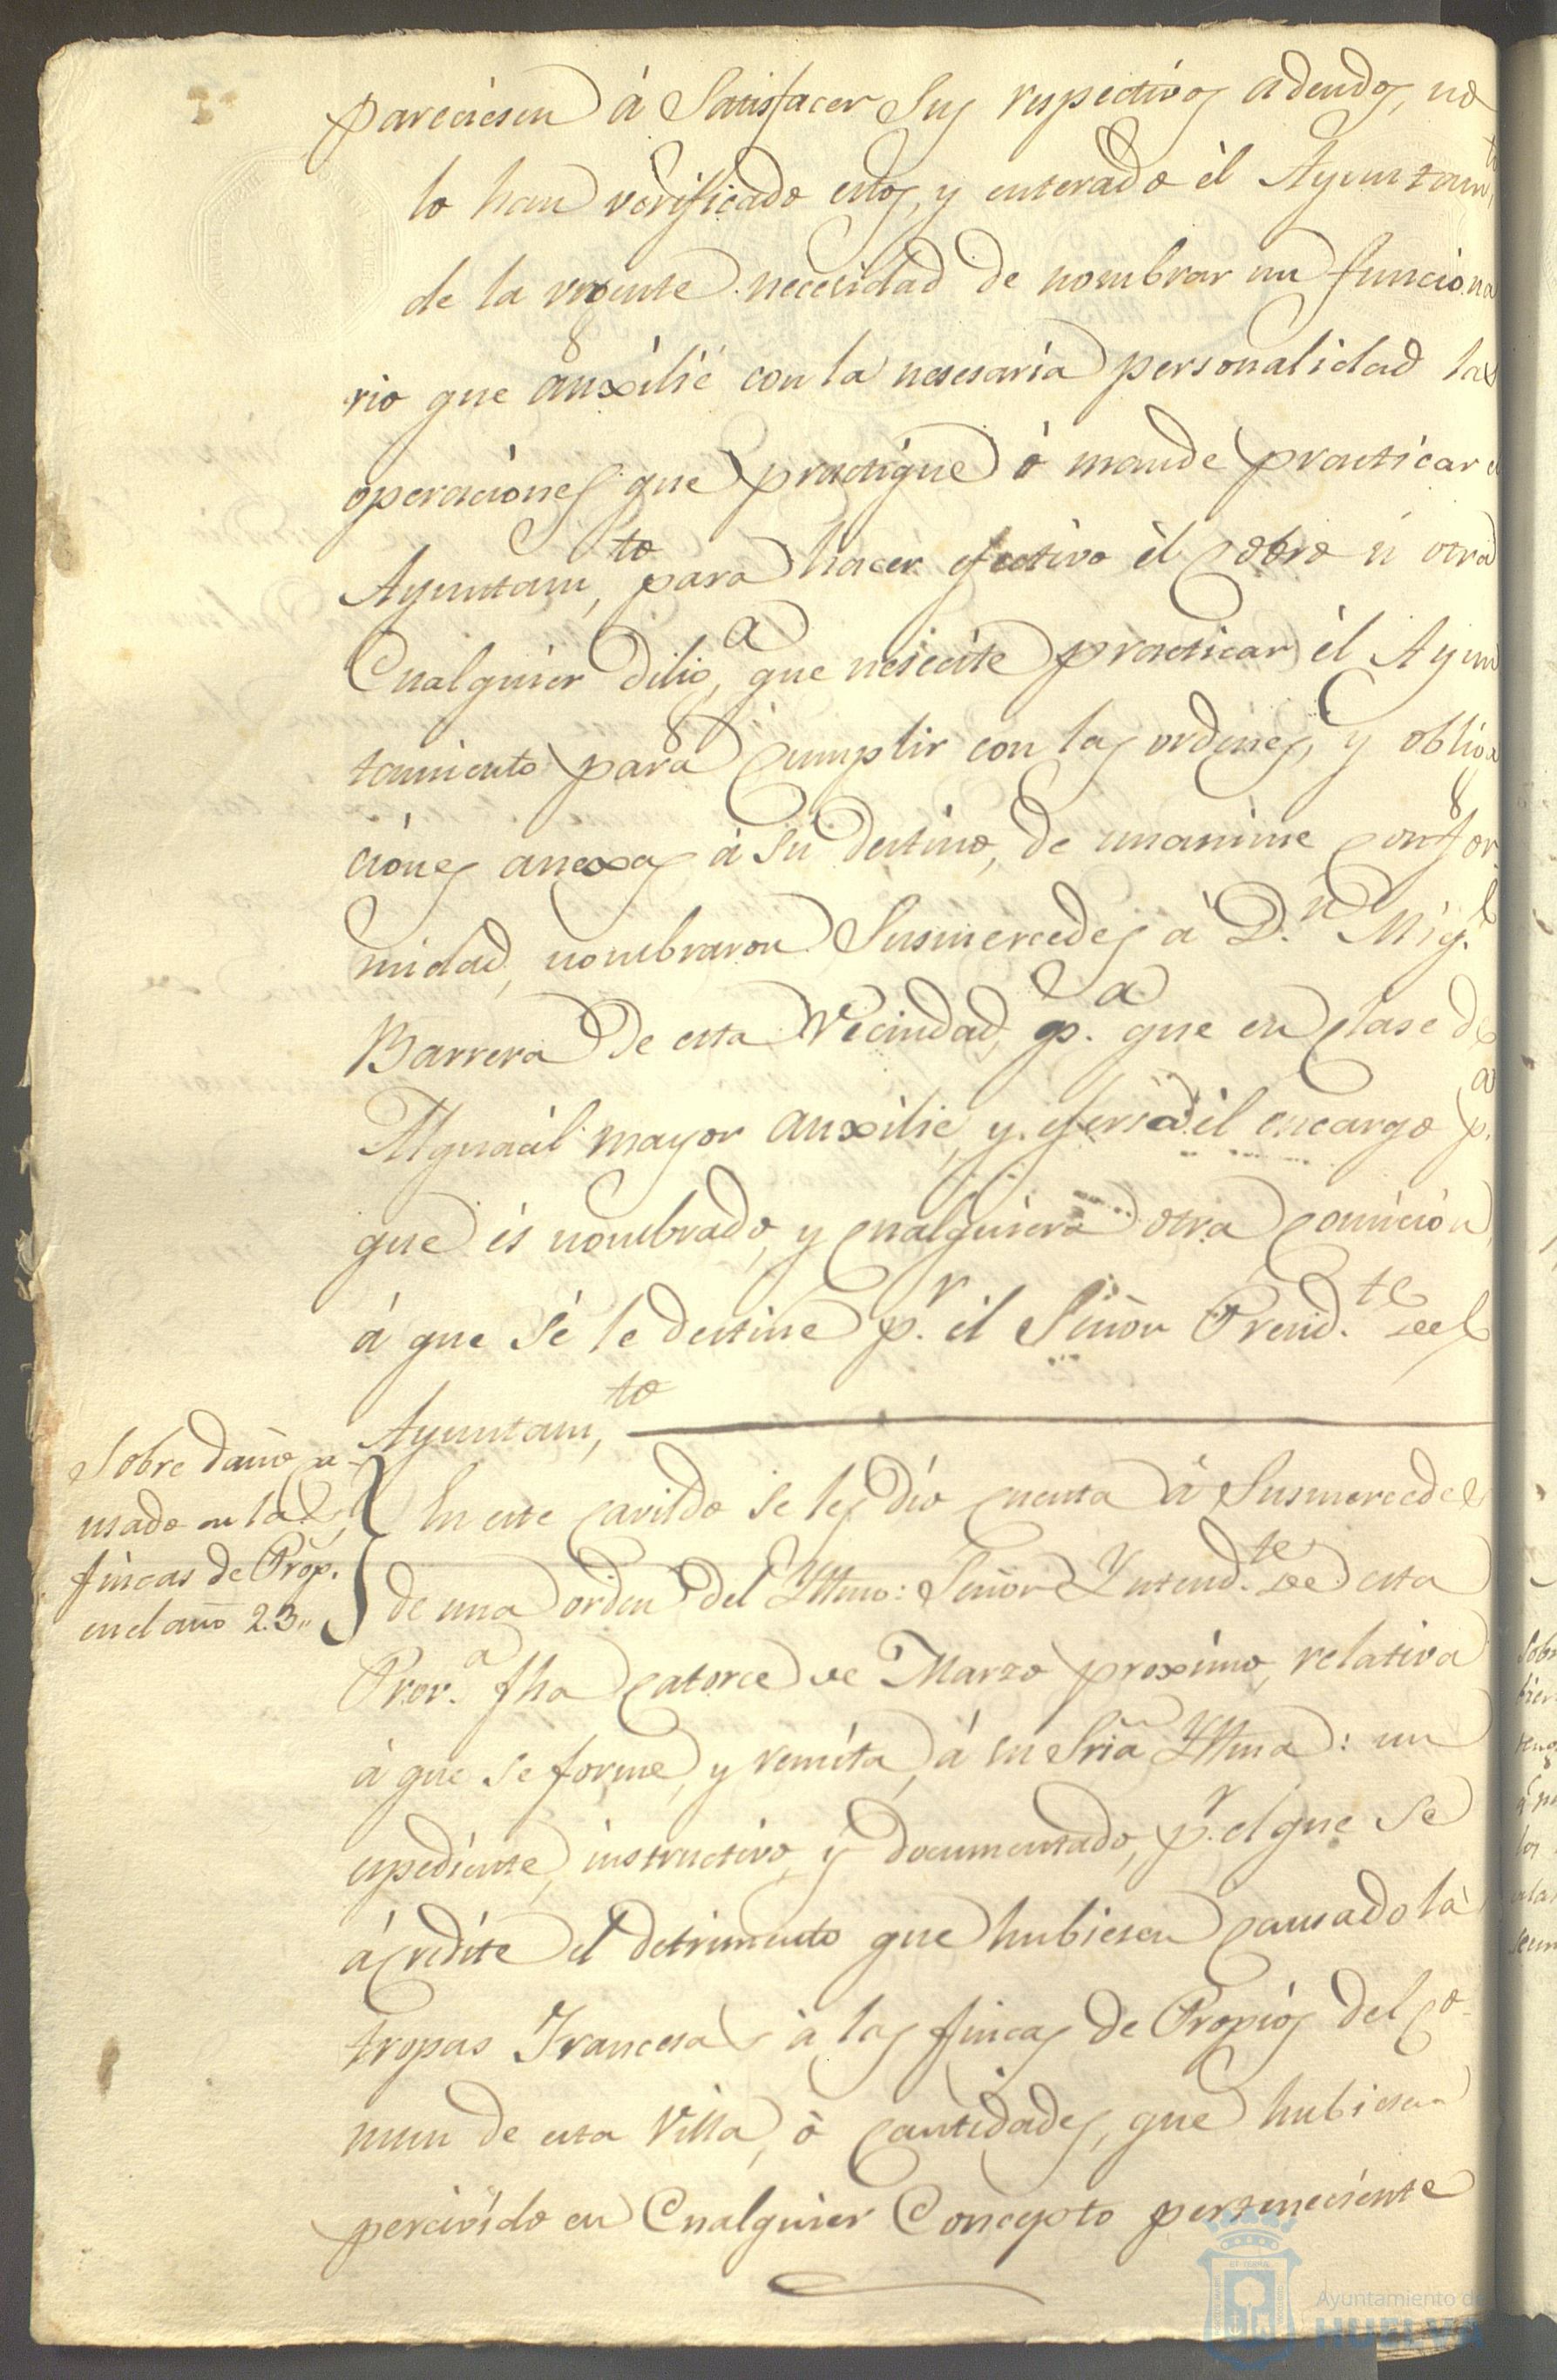 pareciesen á Satisfacer Sus respectivos adeudos, no
lo han verificado estos, y enterado el Ayuntamto
de la urgente necesidad de nombrar un funciona
rio que auxilie con la nesesaria personalidad las
operaciones que practique ó mande practicar el
Ayuntam,to para hacer efectivo él cobro ú otra
Cualquier dilig,a que nesecite practicar él Ayun
tamiento para cumplir con las ordenes, y obliga
ciones anexas á su destino, de unanime confor
midad, nombraron Susmercedes á D.n Mig.l
Barrera de esta Veciudad, p.a que en clase de
Alguacil mayor auxilie, y ejersa él encargo p.a
que és nombrado, y cualquiera otra comición
á que sé le destine p.r él Señor Presid.te del
Ayuntam,to
Sobre daño ca-
usado en las
fincas de Prop.s
en el año 23,,
En este cavildo se les dió cuenta á Susmercedes
de una orden del Yltmo: Señor Yntend.te de esta
Prov.a fha catorce de Marzo proximo, relativa
á que se forme, y remita, á su Sria Yltma: un
espediente, instructivo, y documentado, p.r el que se
ácredite el detrimento que hubiesen causado las
tropas Francesas á las fincas de Propios del co-
mun de esta Villa, ó cantidades, que hubiesen
percivido en Cualquier Concepto perteneciente
Ayuntamiento de
HUELVA